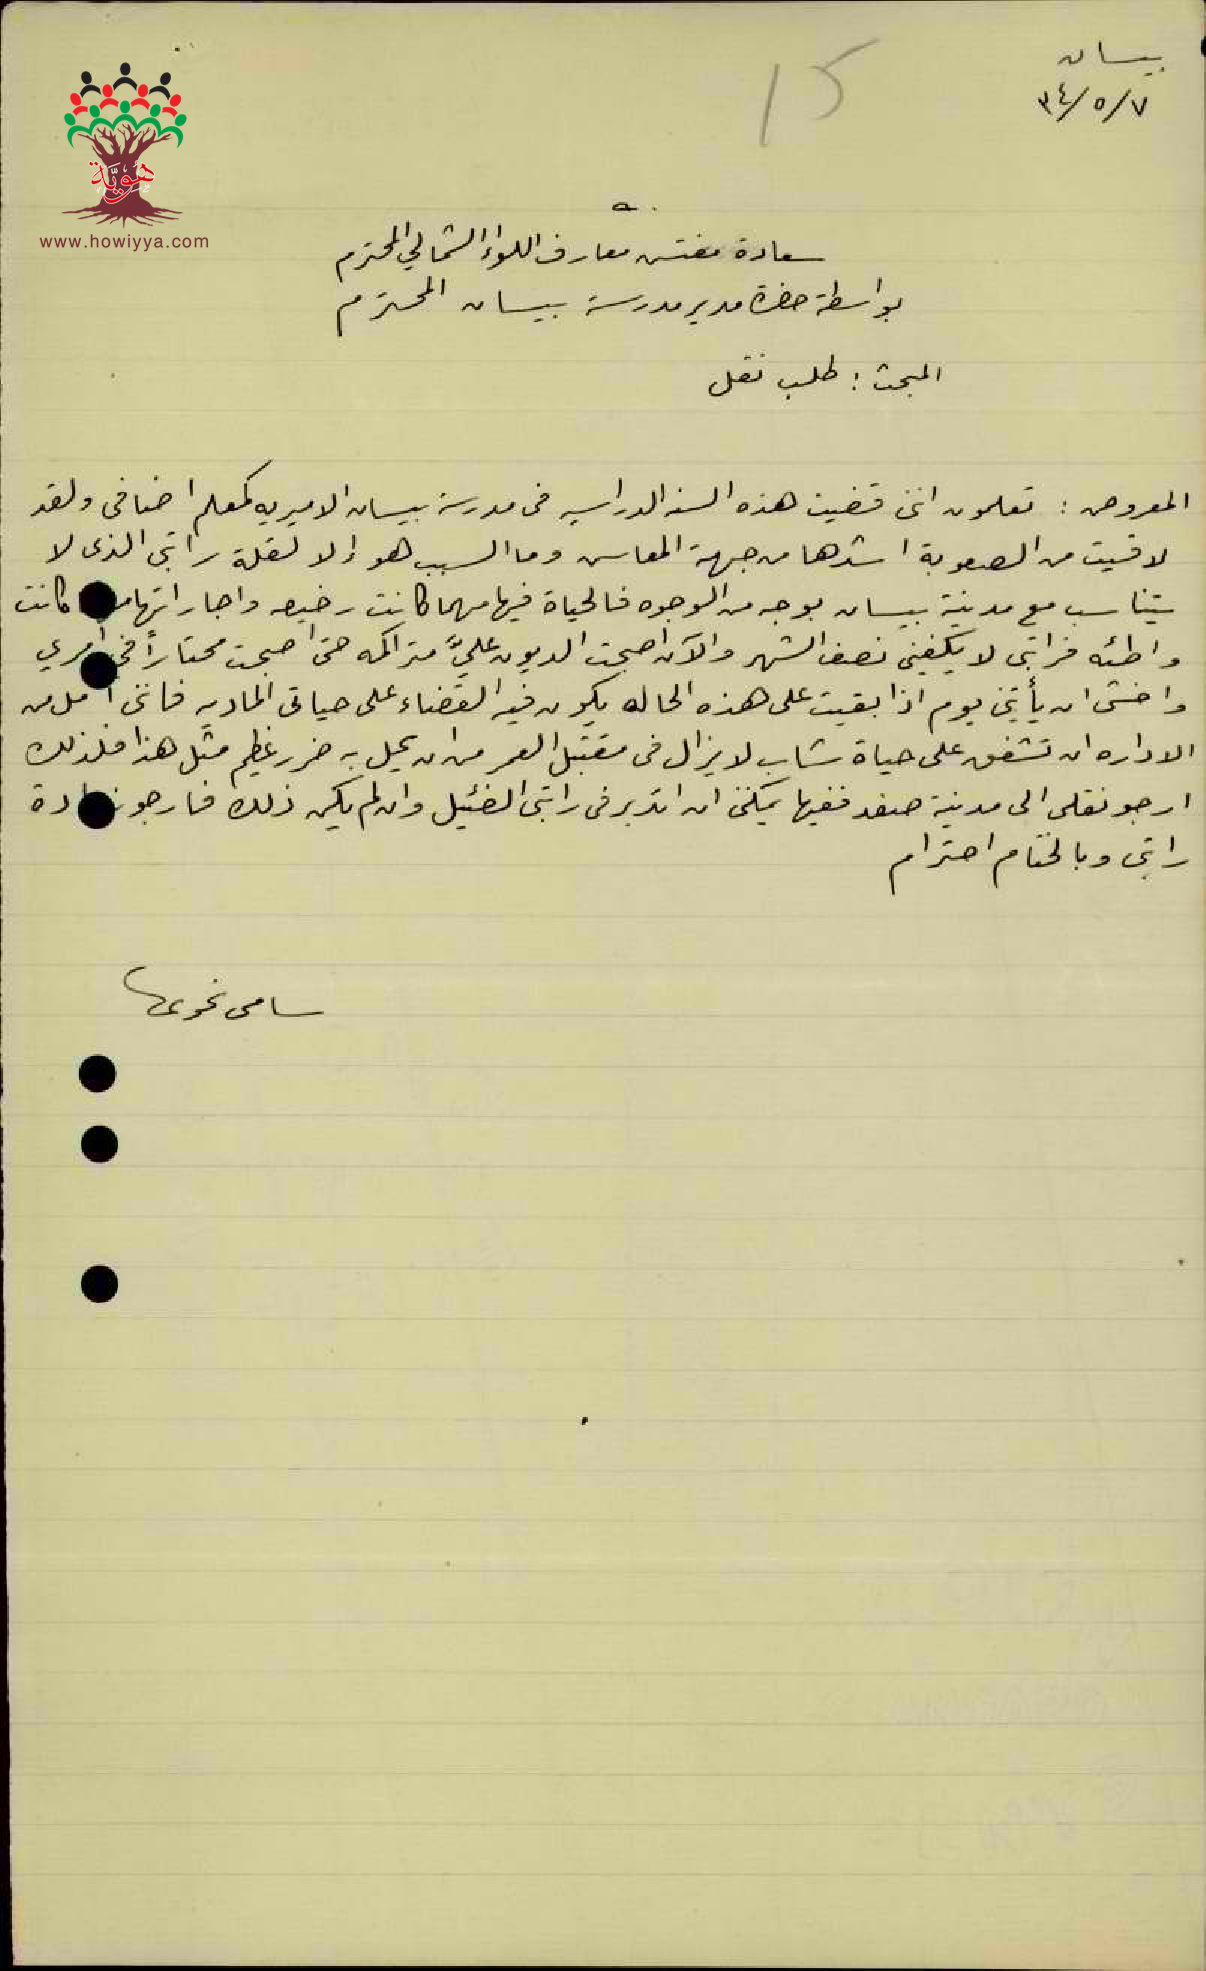 بيسان
٣٤/٥/٧
15
هوية
www.howiyya.com
سعادة مفتش معارف اللواء الشمالي المحترم
بواسطة حضرة مدير مدرسة بيسان المحترم
المبحث : طلب نقل
المعروض : تعلمون انني قضيت هذه السنه الدراسيه في مدرسة بيسان الاميريه كمعلم اضافي ولقد
لاقيت من الصعوبة اشدها من جهة المعاش وما السبب هو إلا لقلة راتبي الذي لا
يتناسب مع مدينة بيسان بوجه من الوجوه فالحياة فيها مهما كانت رخيصه واجاراتها كانت
واطئه فراتبي لا يكفيني نصف الشهر والآن اصبحت الديون عليَّ متراكمه حتى اصبحت محتاراً في امري
واخشى ان يأتيني يوم اذا بقيت على هذه الحاله يكون فيه القضاء على حياتي الماديه فانني آمل من
الاداره ان تشفق على حياة شاب لا يزال في مقتبل العمر من ان يحل به ضرر عظيم مثل هذا فلذلك
ارجو نقلي الى مدينة صفد ففيها يمكنني ان اتدبر في راتبي الضئيل وان لم يكن ذلك فارجو زيادة
راتبي وبالختام احترام
سامي